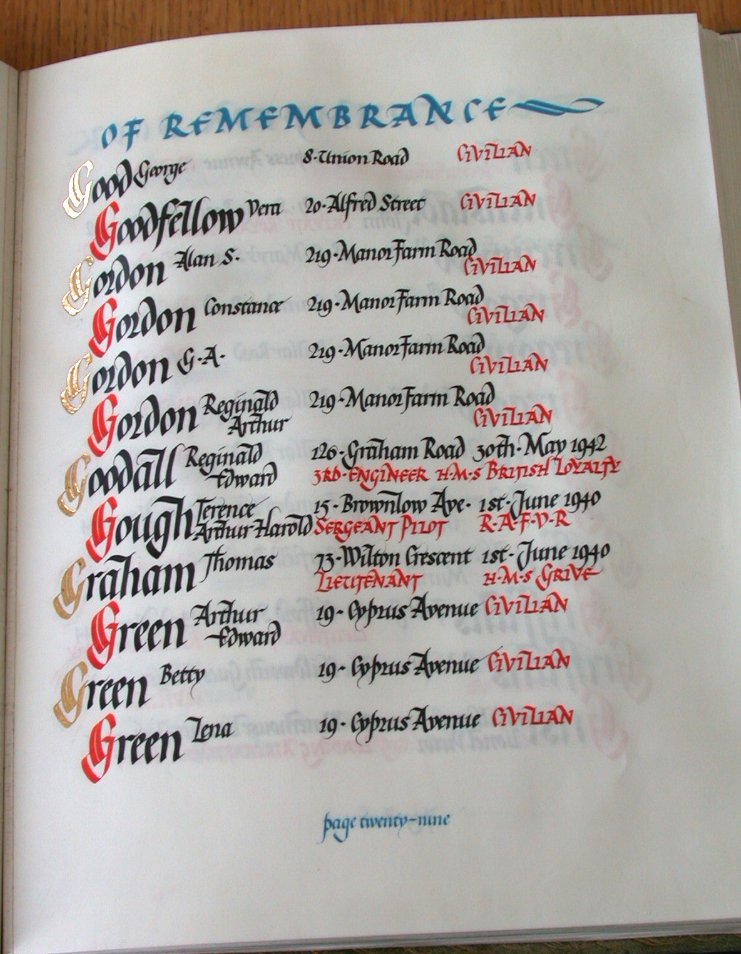 OF REMEMBRANCE
Good George 8·Union Road CIVILIAN
Goodfellow Vera 20·Alfred Street CIVILIAN
Gordon Alan S· 219·Manor Farm Road
CIVILIAN
Gordon Constance 219·Manor Farm Road
CIVILIAN
Gordon G·A· 219·Manor Farm Road
CIVILIAN
Gordon Reginald 219·Manor Farm Road
Arthur CIVILIAN
Goodall Reginald 126·Graham Road 30th·May 1942
Edward 3RD·ENGINEER H·M·S BRITISH LOYALTY
Gough Terence 15·Brownlow Ave· 1st·June 1940
Arthur Harold SERGEANT PILOT R·A·F·V·R
Graham Thomas 73·Wilton Crescent 1st·June 1940
LIEUTENANT H·M·S GRIVE
Green Arthur 19·Cyprus Avenue CIVILIAN
Edward
Green Betty 19·Cyprus Avenue CIVILIAN
Green Lena 19·Cyprus Avenue CIVILIAN
page twenty-nine